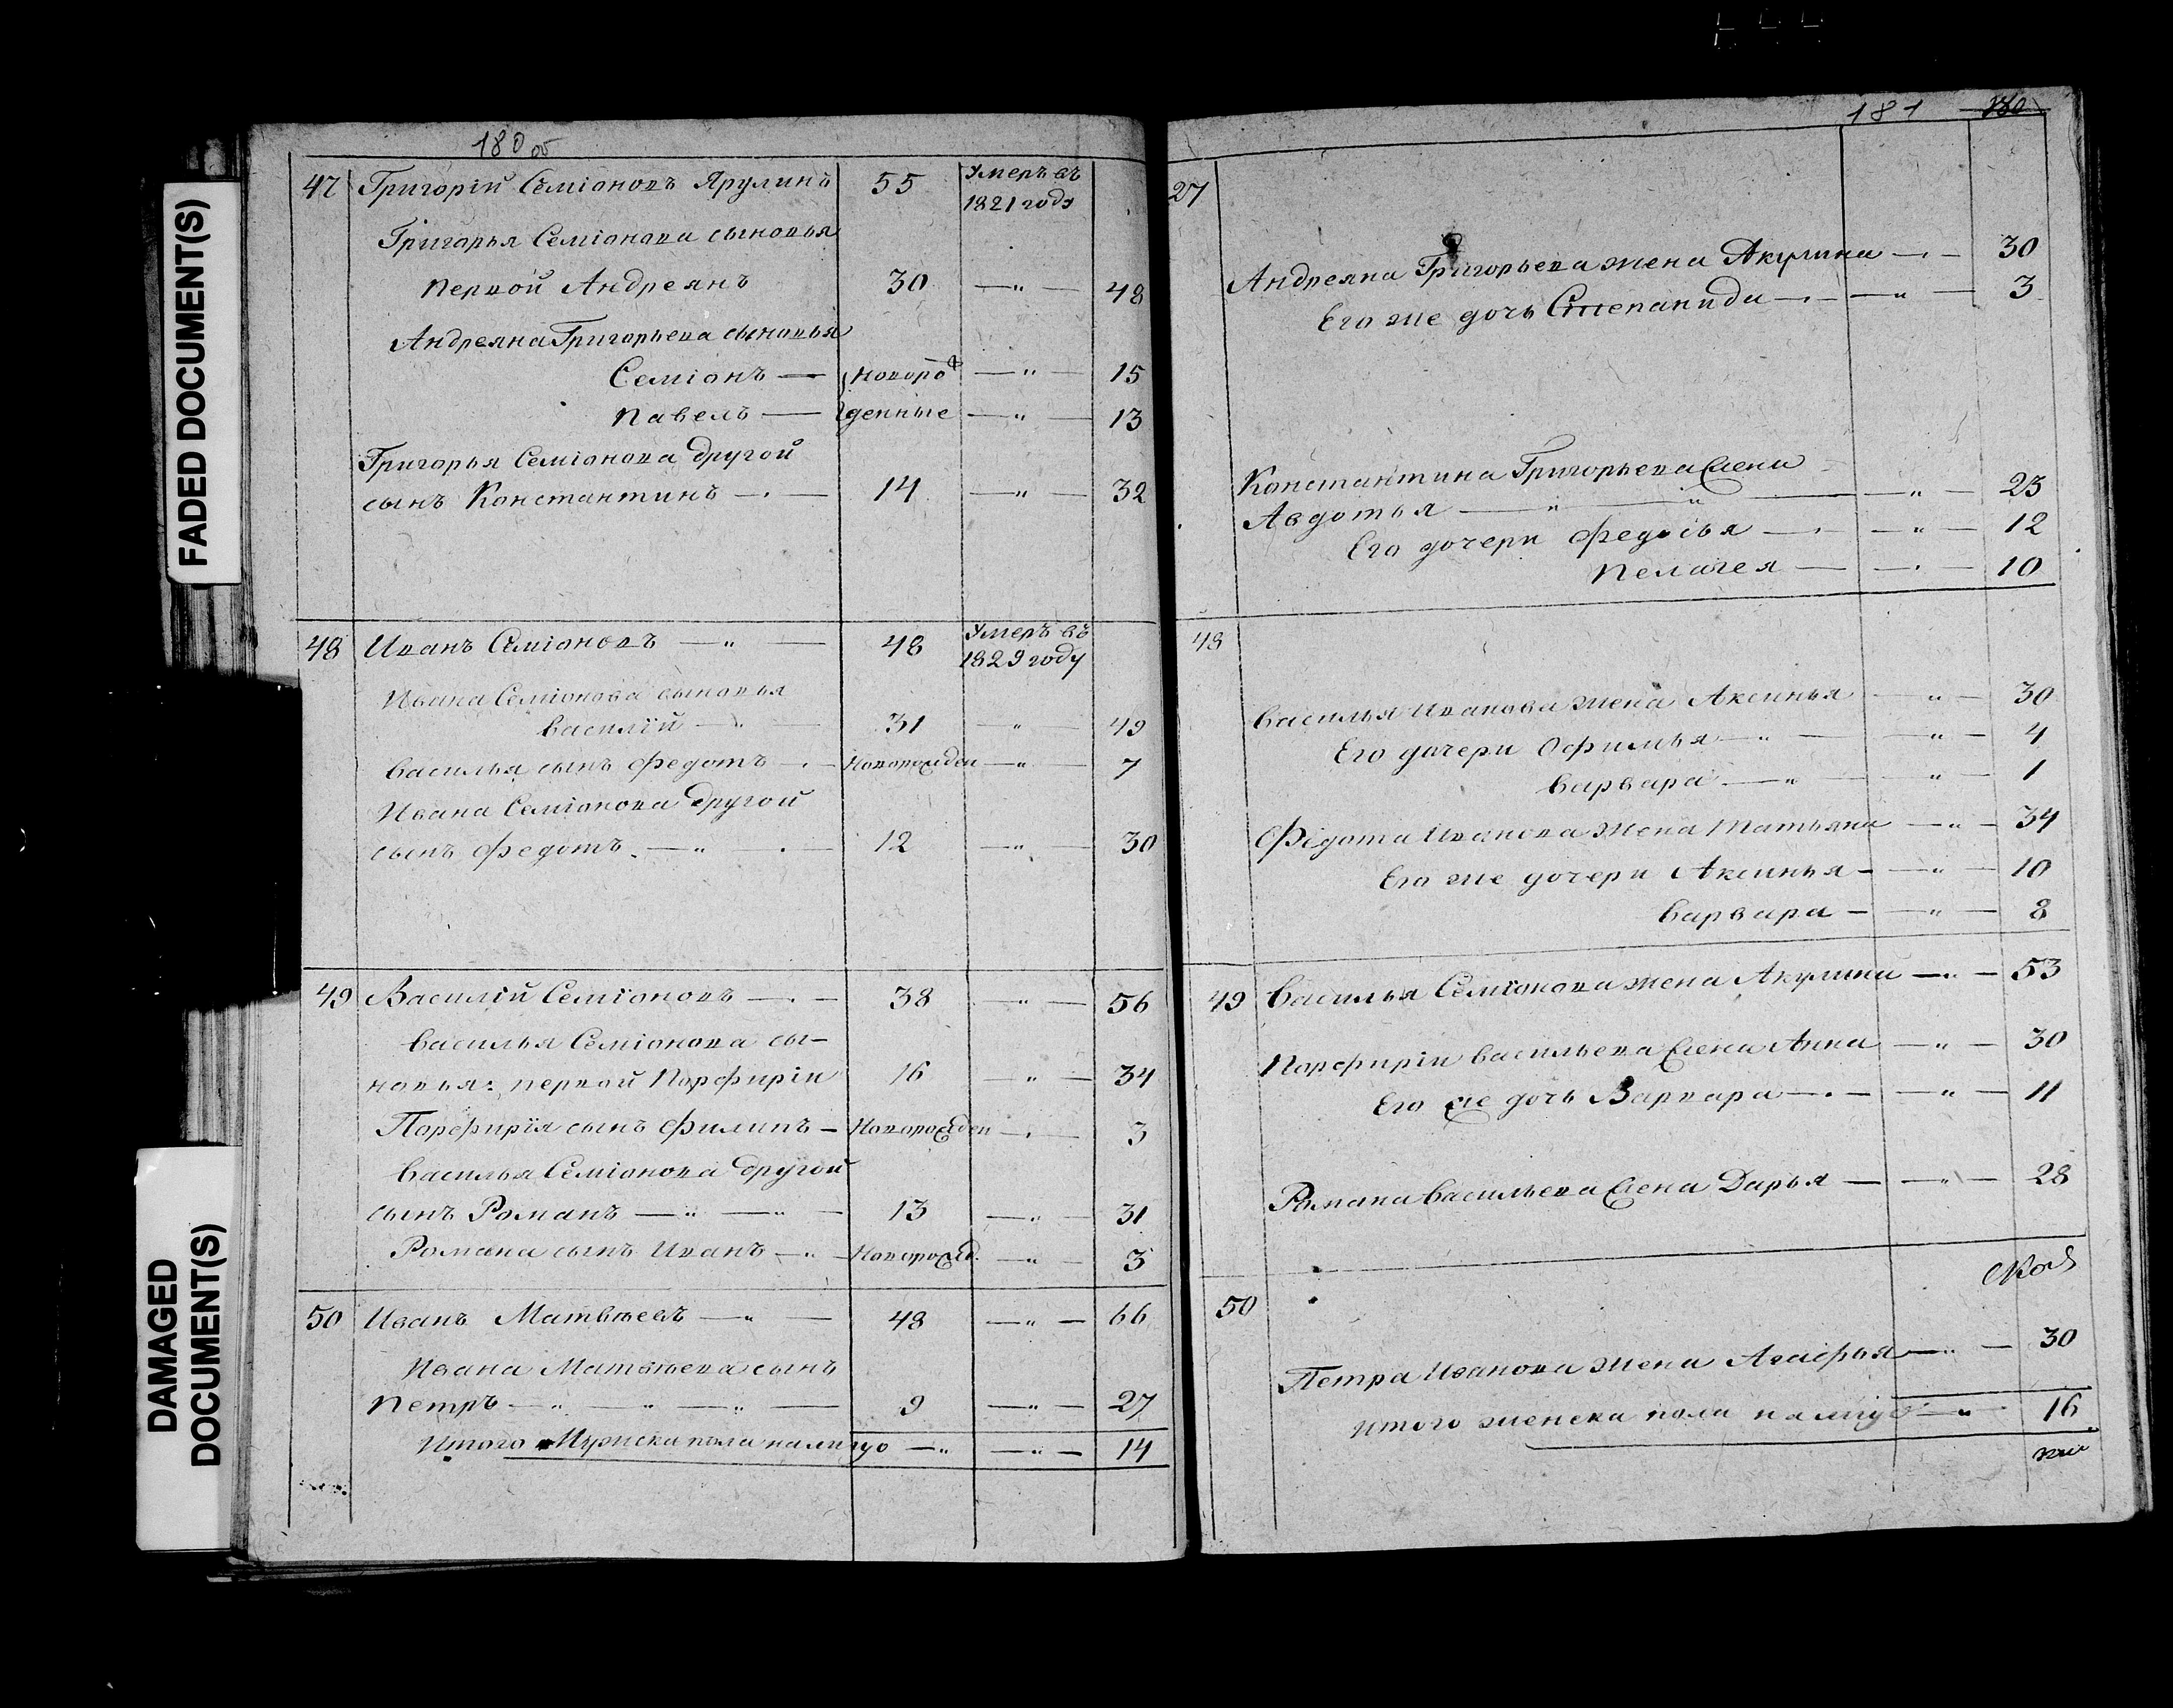 FADED DOCUMENT(S)
DAMAGED
DOCUMENT(S)
180 об
47 Григорій Семіоновъ Ярулинъ 55 Умеръ въ
1821 годъ
Григорья Семіонова сыновья
первой Андреянъ 30 — " — 48
Андреяна Григорьева сыновья
Семіонъ — новоро — " — 15
Павелъ — жденные — " — 13
Григорья Семіонова другой
сынъ Константинъ — . — 14 — " — 32
48 Иванъ Семіоновъ — " — 48 Умеръ въ
1829 году
Ивана Семіонова сыновья
Василій — " — 31 " — 49
Василья сынъ Федотъ — . — Новорожден — " — 7
Ивана Семіонова другой
сынъ Федотъ. — " — . — 12 — " — 30
49 Василій Семіоновъ — . — 38 — " — 56
Василья Семіонова сы-
новья: первой Порфиріи 16 — " — 34
Порфирія сынъ Филипъ — Новорожден — . — 3
Василья Семіонова другой
сынъ Романъ — " — " — 13 — " — 31
Романа сынъ Иванъ — " — Новорожд. — " — 3
50 Иванъ Матвѣевъ — " — 48 — " — 66
Ивана Матвѣева сынъ
Петръ — " — " — " — 9 — " — 27
Итого Мужска пола налицо — " — " — 14
181 180
27
Андреяна Григорьева жена Акулина — . — 30
Его же дочь Степанида — . — " — 3
Константина Григорьева жена
Авдотья — " — " — " — 23
Его дочери Федосья — . — " — 12
Пелагея — — . — 10
48
Василья Иванова жена Аксинья — " — 30
Его дочери Офимья — " — " — 4
Варвара — " — " — 1
Федота Иванова жена Татьяна — " — 34
Его же дочери Аксинья — — " — 10
Варвара — — " — 8
49 Василья Семіонова жена Акулина — " — 53
Порфиріи Васильева жена Анна — " — 30
Его же дочь Варвара — . — — " — 11
Романа Васильева жена Дарья — — " — 28
50
Петра Иванова жена Агафья — " — 30
Итого женска пола налицо — " 16